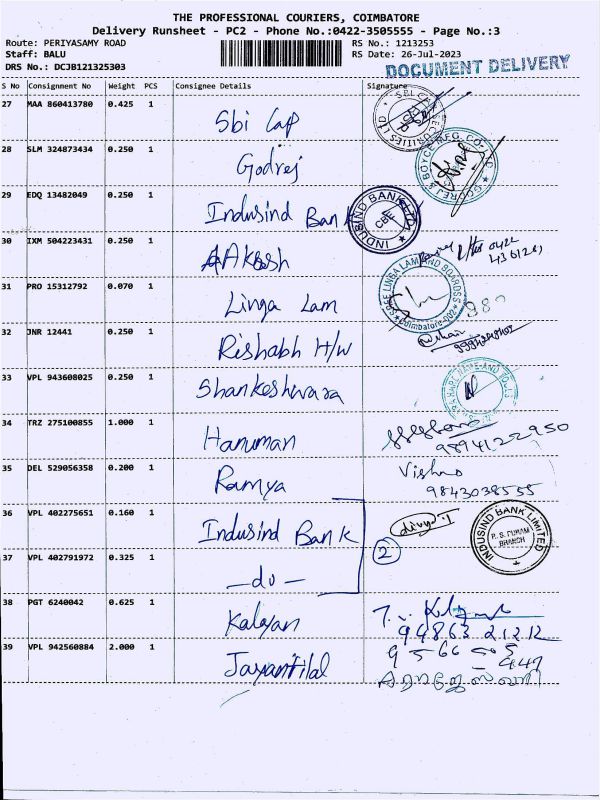 THE PROFESSIONAL COURIERS, COIMBATORE
Delivery Runsheet - PC2 - Phone No.:0422-3505555 - Page No.:3
Route: PERIYASAMY ROAD RS No.: 1213253
Staff: BALU RS Date: 26-Jul-2023
DRS No.: DCJB121325303
DOCUMENT DELIVERY
S No Consignment No Weight PCS Consignee Details Signature
27 MAA 860413780 0.425 1 Sbi Cap
28 SLM 324873434 0.250 1 Godrej
GODREJ & BOYCE MFG. CO. LTD
29 EDQ 13482049 0.250 1 Indusind Bank
INDUSIND BANK LTD CBE
30 IXM 504223431 0.250 1 AAkash
0422
31 PRO 15312792 0.070 1 Linga Lam
SREE LINGA LAM AND BOARDSS Coimbatore-002
32 JNR 12441 0.250 1 Rishabh H/w
33 VPL 943608025 0.250 1 Shankeshwara
34 TRZ 275100855 1.000 1 Hanuman
9894122950
35 DEL 529056358 0.200 1 Ramya
Vishno
9843038555
36 VPL 402275651 0.160 1 Indusind Bank
INDUSIND BANK LIMITED R. S. PURAM BRANCH
37 VPL 402791972 0.325 1 —do—
2
38 PGT 6240042 0.625 1 Kalayan
94863 21212
39 VPL 942560884 2.000 1 Jayantilal